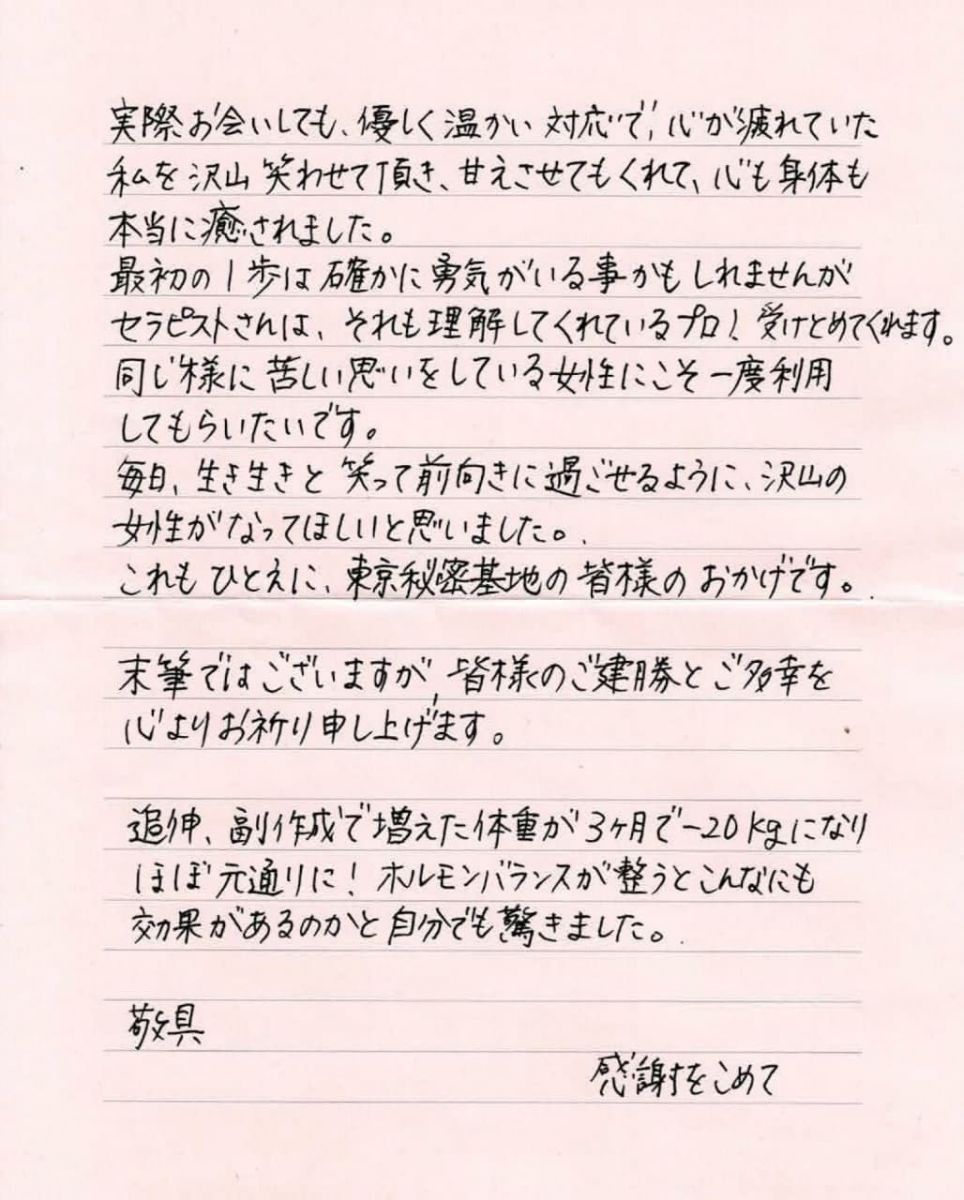 実際お会いしても、優しく温かい対応で、心が疲れていた
私を沢山笑わせて頂き、甘えさせてもくれて、心も身体も
本当に癒されました。
最初の1歩は確かに勇気がいる事かもしれませんが
セラピストさんは、それも理解してくれているプロ！受けとめてくれます。
同じ様に苦しい思いをしている女性にこそ一度利用
してもらいたいです。
毎日、生き生きと笑って前向きに過ごせるように、沢山の
女性がなってほしいと思いました。
これもひとえに、東京秘密基地の皆様のおかげです。
末筆ではございますが、皆様のご建勝とご多幸を
心よりお祈り申し上げます。
追伸、副作成で増えた体重が3ヶ月で-20kgになり
ほぼ元通りに！ホルモンバランスが整うとこんなにも
効果があるのかと自分でも驚きました。
敬具
感謝をこめて